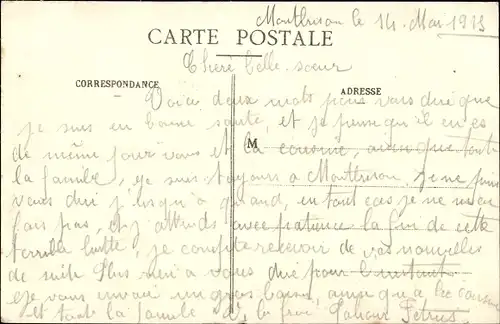 Montbrison le 14 Mai 1915
CARTE POSTALE
Chère belle-soeur
CORRESPONDANCE
ADRESSE
Voici deux mots pour vous dire que
je suis en bonne santé, et je pense qu'il en es
M
de même pour vous et la cousine, ainsi que toute
la famille, je suis toujours à Montbrison. Je ne puis
vous dire jusqu'à quand, en tout cas je ne
fais pas, et j'attends avec patience la fin de cette
terrible lutte, je compte recevoir de vos nouvelles
de suite Plus rien à vous dire pour l'instant
Je vous envoi un gros baiser, ainsi qu'à la cousine
et toute la famille